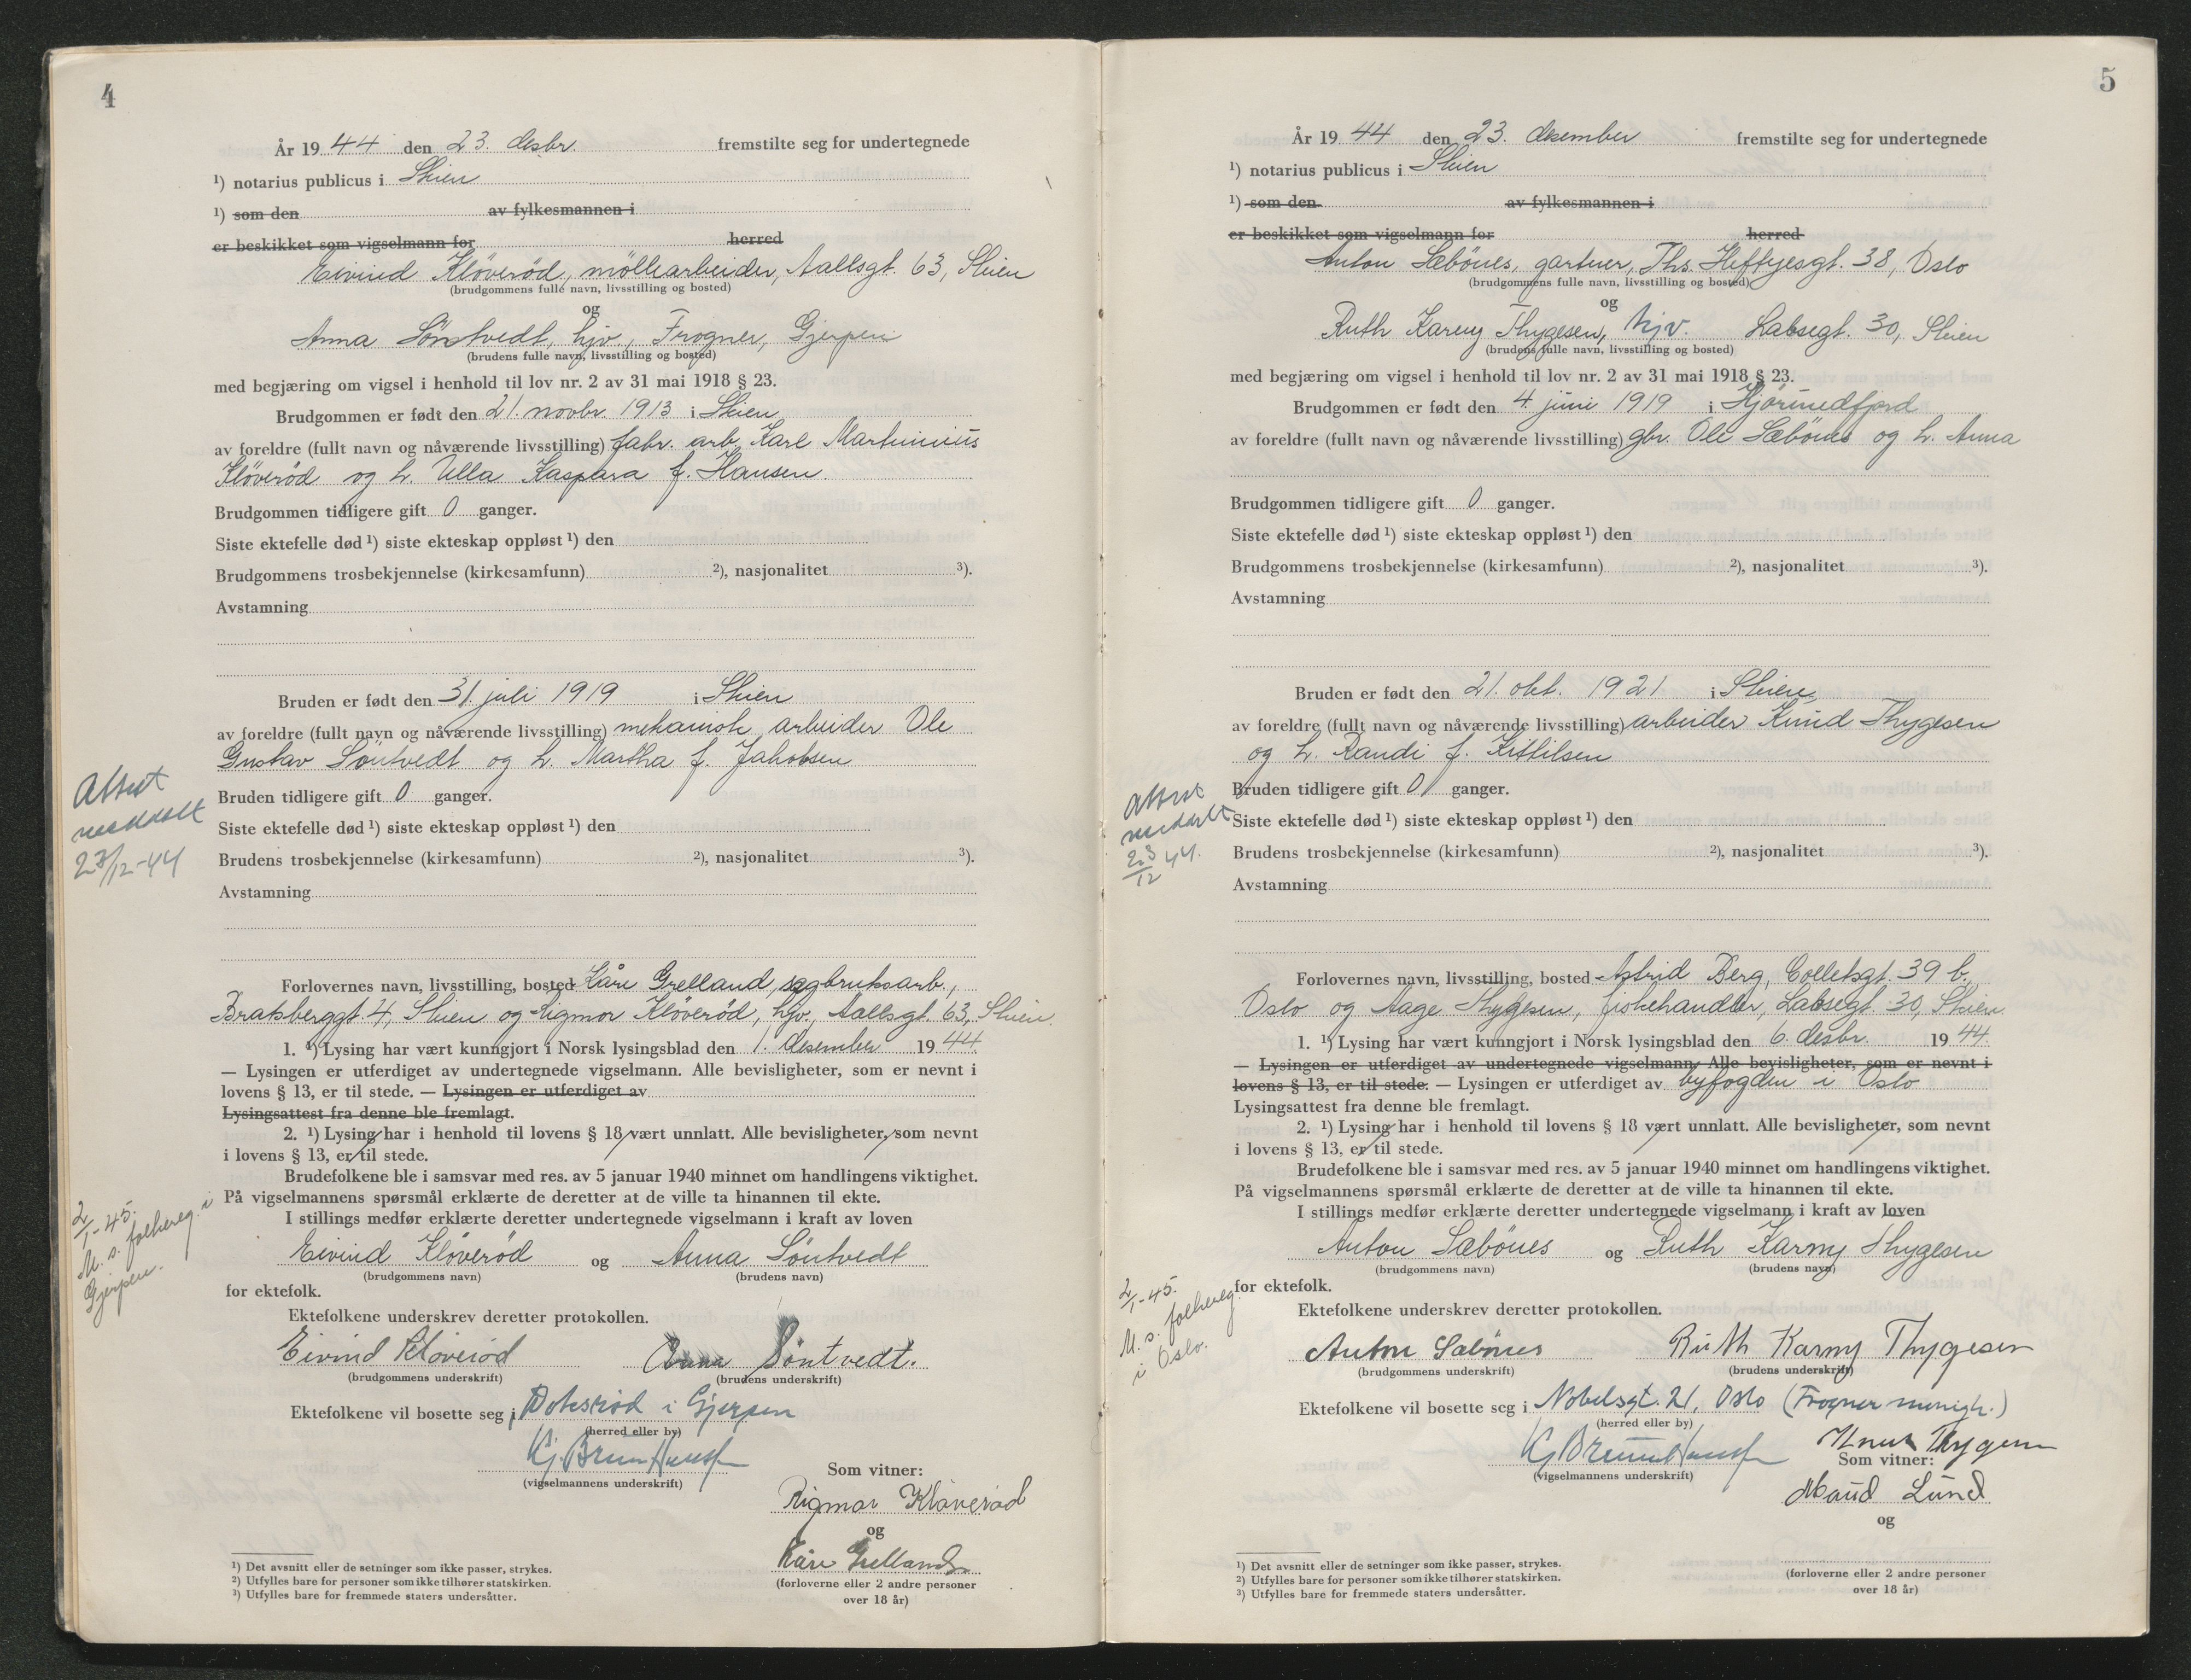 4
År 19 44 den 23. desbr. fremstilte seg for undertegnede
¹) notarius publicus i Skien
¹) som den av fylkesmannen i
er beskikket som vigselmann for herred
Eivind Klöveröd, möllearbeider, Aallsgt. 63, Skien
(brudgommens fulle navn, livsstilling og bosted)
og
Anna Söntvedt, hjv., Frogner, Gjerpen
(brudens fulle navn, livsstilling og bosted)
med begjæring om vigsel i henhold til lov nr. 2 av 31 mai 1918 § 23.
Brudgommen er født den 21. novbr. 1913 i Skien
av foreldre (fullt navn og nåværende livsstilling) fabr. arb. Karl Martinius
Klöveröd og h. Ulla Kaspara f. Hansen.
Brudgommen tidligere gift 0 ganger.
Siste ektefelle død ¹) siste ekteskap oppløst ¹) den
Brudgommens trosbekjennelse (kirkesamfunn) ²), nasjonalitet ³).
Avstamning
Bruden er født den 31. juli 1919 i Skien
av foreldre (fullt navn og nåværende livsstilling) mekanisk arbeider Ole
Gustav Söntvedt og h. Martha f. Jakobsen
Bruden tidligere gift 0 ganger.
Siste ektefelle død ¹) siste ekteskap oppløst ¹) den
Brudens trosbekjennelse (kirkesamfunn) ²), nasjonalitet ³).
Avstamning
Attest
meddelt
23/12-44
Forlovernes navn, livsstilling, bosted Kåre Grelland, sagbruksarb.,
Bratsberggt. 4, Skien og Rigmor Klöveröd, hjv., Aallsgt. 63, Skien.
1. ¹) Lysing har vært kunngjort i Norsk lysingsblad den 1. desember 19 44.
— Lysingen er utferdiget av undertegnede vigselmann. Alle bevisligheter, som er nevnt i
lovens § 13, er til stede. — Lysingen er utferdiget av
Lysingsattest fra denne ble fremlagt.
2. ¹) Lysing har i henhold til lovens § 18 vært unnlatt. Alle bevisligheter, som nevnt
i lovens § 13, er til stede.
Brudefolkene ble i samsvar med res. av 5 januar 1940 minnet om handlingens viktighet.
På vigselmannens spørsmål erklærte de deretter at de ville ta hinannen til ekte.
I stillings medfør erklærte deretter undertegnede vigselmann i kraft av loven
Eivind Klöveröd og Anna Söntvedt
(brudgommens navn) (brudens navn)
for ektefolk.
2/1-45.
M. s. folkereg. i
Gjerpen.
Ektefolkene underskrev deretter protokollen.
Eivind Kløverød Anna Söntvedt.
(brudgommens underskrift) (brudens underskrift)
Ektefolkene vil bosette seg i i Gjerpen
(herred eller by)
(vigselmannens underskrift)
Som vitner:
Rigmor Kløverød
og
Kåre Grelland
(forloverne eller 2 andre personer
over 18 år)
¹) Det avsnitt eller de setninger som ikke passer, strykes.
²) Utfylles bare for personer som ikke tilhører statskirken.
³) Utfylles bare for fremmede staters undersåtter.
5
År 19 44 den 23. desember fremstilte seg for undertegnede
¹) notarius publicus i Skien
¹) som den av fylkesmannen i
er beskikket som vigselmann for herred
Anton Sæbönes, gartner, Ths. Heftyesgt. 38, Oslo
(brudgommens fulle navn, livsstilling og bosted)
og
Ruth Karny Thygesen, hjv. Labsegt. 30, Skien
(brudens fulle navn, livsstilling og bosted)
med begjæring om vigsel i henhold til lov nr. 2 av 31 mai 1918 § 23.
Brudgommen er født den 4. juni 1919 i Hjörundfjord
av foreldre (fullt navn og nåværende livsstilling) gbr. Ole Sæbönes og h. Anna
Brudgommen tidligere gift 0 ganger.
Siste ektefelle død ¹) siste ekteskap oppløst ¹) den
Brudgommens trosbekjennelse (kirkesamfunn) ²), nasjonalitet ³).
Avstamning
Bruden er født den 21. okt. 1921 i Skien
av foreldre (fullt navn og nåværende livsstilling) arbeider Knud Thygesen
og h. Randi f. Kittilsen
Bruden tidligere gift 0 ganger.
Siste ektefelle død ¹) siste ekteskap oppløst ¹) den
Brudens trosbekjennelse (kirkesamfunn) ²), nasjonalitet ³).
Avstamning
Attest
meddelt
23/12 44.
Forlovernes navn, livsstilling, bosted Astrid Berg, Colletsgt. 39 b,
Oslo og Aage Thygesen, fiskehandler, Labsegt. 30, Skien
1. ¹) Lysing har vært kunngjort i Norsk lysingsblad den 6. desbr. 19 44.
— Lysingen er utferdiget av undertegnede vigselmann. Alle bevisligheter, som er nevnt i
lovens § 13, er til stede. — Lysingen er utferdiget av byfogden i Oslo
Lysingsattest fra denne ble fremlagt.
2. ¹) Lysing har i henhold til lovens § 18 vært unnlatt. Alle bevisligheter, som nevnt
i lovens § 13, er til stede.
Brudefolkene ble i samsvar med res. av 5 januar 1940 minnet om handlingens viktighet.
På vigselmannens spørsmål erklærte de deretter at de ville ta hinannen til ekte.
I stillings medfør erklærte deretter undertegnede vigselmann i kraft av loven
Anton Sæbönes og Ruth Karny Thygesen
(brudgommens navn) (brudens navn)
for ektefolk.
2/1-45.
M. s. folkereg.
i Oslo.
Ektefolkene underskrev deretter protokollen.
Anton Sæbönes Ruth Karny Thygesen
(brudgommens underskrift) (brudens underskrift)
Ektefolkene vil bosette seg i Nobelsgt. 21, Oslo (Frogner menigh.)
(herred eller by)
(vigselmannens underskrift)
Knut Thygesen
Som vitner:
Maud Lund
og
(forloverne eller 2 andre personer
over 18 år)
¹) Det avsnitt eller de setninger som ikke passer, strykes.
²) Utfylles bare for personer som ikke tilhører statskirken.
³) Utfylles bare for fremmede staters undersåtter.